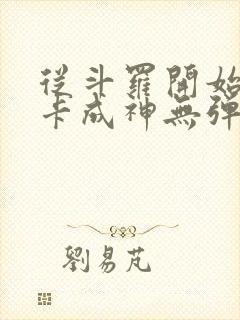 從斗羅開始
卡成神無彈
劉易芃